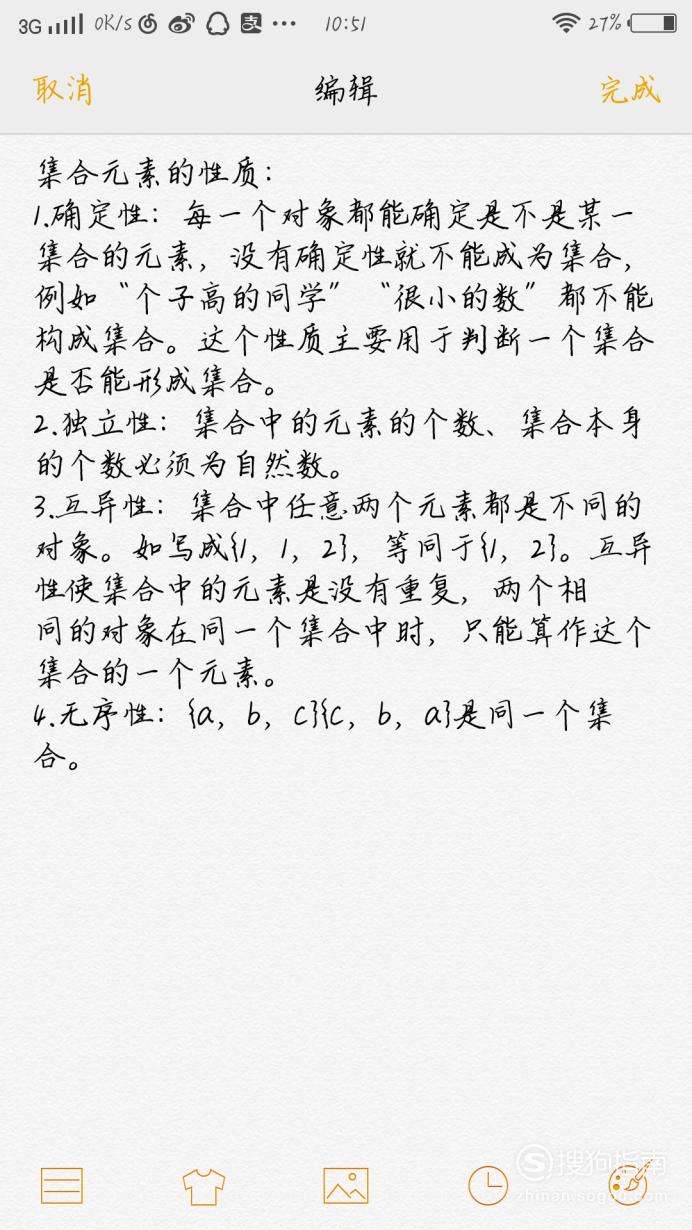 3G 0K/s 支 ... 10:51 27%
取消 编辑 完成
集合元素的性质：
1.确定性：每一个对象都能确定是不是某一
集合的元素，没有确定性就不能成为集合，
例如“个子高的同学”“很小的数”都不能
构成集合。这个性质主要用于判断一个集合
是否能形成集合。
2.独立性：集合中的元素的个数、集合本身
的个数必须为自然数。
3.互异性：集合中任意两个元素都是不同的
对象。如写成{1，1，2}，等同于{1，2}。互异
性使集合中的元素是没有重复，两个相
同的对象在同一个集合中时，只能算作这个
集合的一个元素。
4.无序性：{a，b，c}{c，b，a}是同一个集
合。
S搜狗指南
zhinan.sogou.com